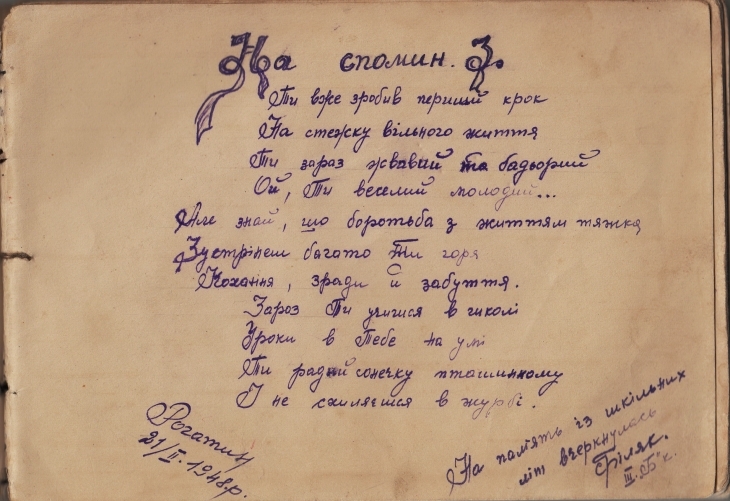 На спомин. З.
Ти вже зробив перший крок
На стежку вільного життя
Ти зараз жвавий та бадьорий
Ой, Ти веселий молодий...
Але знай, що боротьба з життям тяжка
Зустрінеш багато Ти горя
Кохання, зради й забуття.
Зароз Ти учишся в школі
Уроки в Тебе на умі
Ти радий сонечку
І не схиляєшся в журбі.
Рогатин
21/II. 1948 р.
На пам'ять із шкільних
літ вчеркнулась
Філяк.
III. "Б" к.